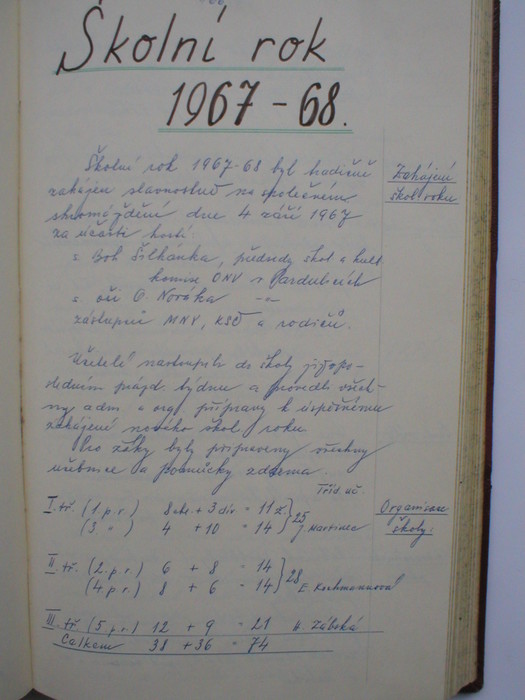 Školní rok
1967-68.
Školní rok 1967-68 byl tradičně
zahájen slavnostně na společném
shromáždění dne 4 září 1967
za účasti hostí:
s. Boh Šilhánka, předsedy škol a kult
komise ONV v Pardubicích
s. oši O. Nováka -"-
zástupců MNV, KSČ a rodičů.
Učitelé nastoupili do školy již po-
sledním prázd. týdnu a provedli všech-
ny adm a org přípravy k úspěšnému
zahájení nového škol roku.
Pro žáky byly připraveny všechny
učebnice a pomůcky zdarma.
Zahájení
škol roku
Organisace
školy:
Tříd. uč.
I. tř. (1 p. r.) 8 chl. + 3 dív. = 11 ž. } 25
(3 " ) 4 + 10 = 14 J. Martinec
II. tř. (2. p. r.) 6 + 8 = 14 } 28
(4. p. r.) 8 + 6 = 14 E. Kochmannová
III. tř. (5 p. r.) 12 + 9 = 21 Zábská
Celkem 38 + 36 = 74